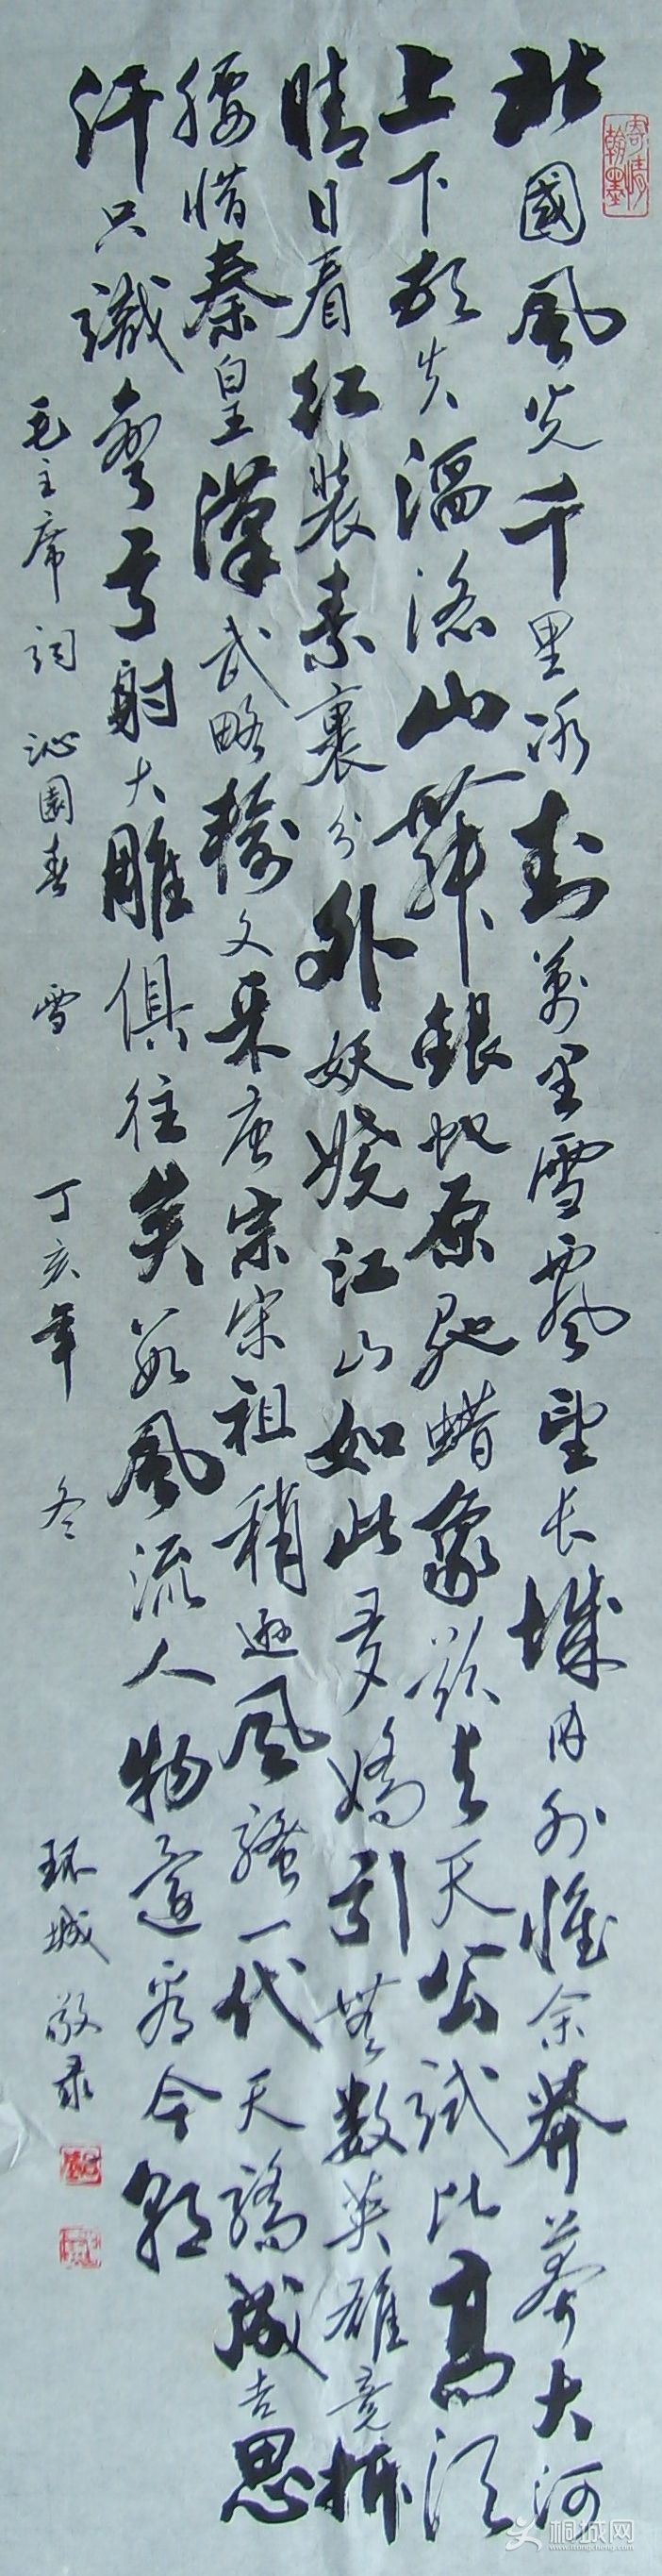 寄情翰墨
北國風光千里冰封萬里雪飄望长城内外惟余莽莽大河
上下頓失滔滔山舞銀蛇原馳蜡象欲与天公試比高須
晴日看红装素裹分外妖嬈江山如此多嬌引無數英雄竞折
腰惜秦皇漢武略輸文采唐宗宋祖稍遜風騷一代天驕成吉思
汗只識彎弓射大雕俱往矣數風流人物還看今朝
毛主席詞 沁園春 雪 丁亥年 冬 环城敬录
桐城网